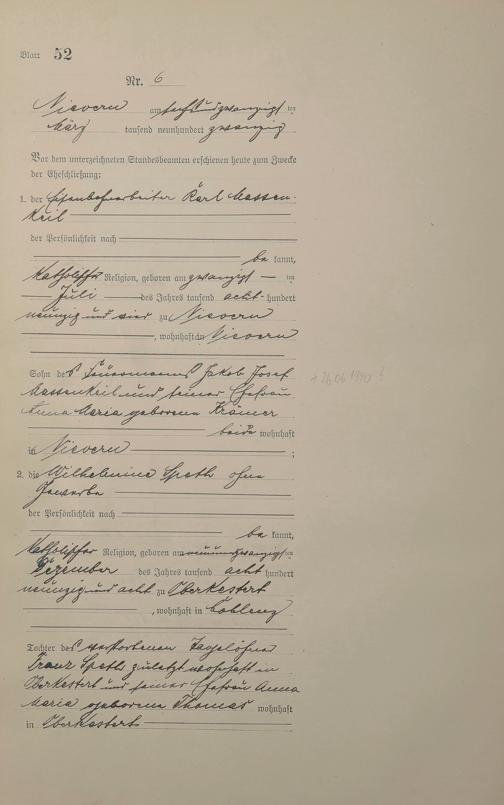 Blatt 52
Nr. 6
Nievern am sechsundzwanzigsten
März tausend neunhundert zwanzig
Vor dem unterzeichneten Standesbeamten erschienen heute zum Zwecke
der Eheschließung:
1. der Eisenbahnarbeiter Karl Massen-
keil
der Persönlichkeit nach
be kannt,
katholischer Religion, geboren am zwanzigsten
Juli des Jahres tausend acht hundert
neunzig und vier zu Nievern
, wohnhaft in Nievern
Sohn des Jakob Josef
Massenkeil und seiner Ehefrau
Anna Maria geborene Krämer
beide wohnhaft
in Nievern ;
+ 26.06 1940 ?
2. die Wilhelmine Speth ohne
Gewerbe
der Persönlichkeit nach
be kannt,
katholischer Religion, geboren am neunundzwanzigsten
Dezember des Jahres tausend acht hundert
neunzig und acht zu Oberkestert
, wohnhaft in Coblenz
Tochter des verstorbenen Tagelöhner
Franz Speth zuletzt wohnhaft in
Oberkestert und seiner Ehefrau Anna
Maria geborene Thomas wohnhaft
in Oberkestert